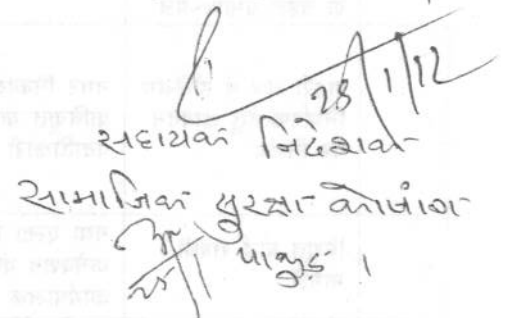 28/1/12
सहायक निदेशक
सामाजिक सुरक्षा कोषांग
पाकुड़ ।